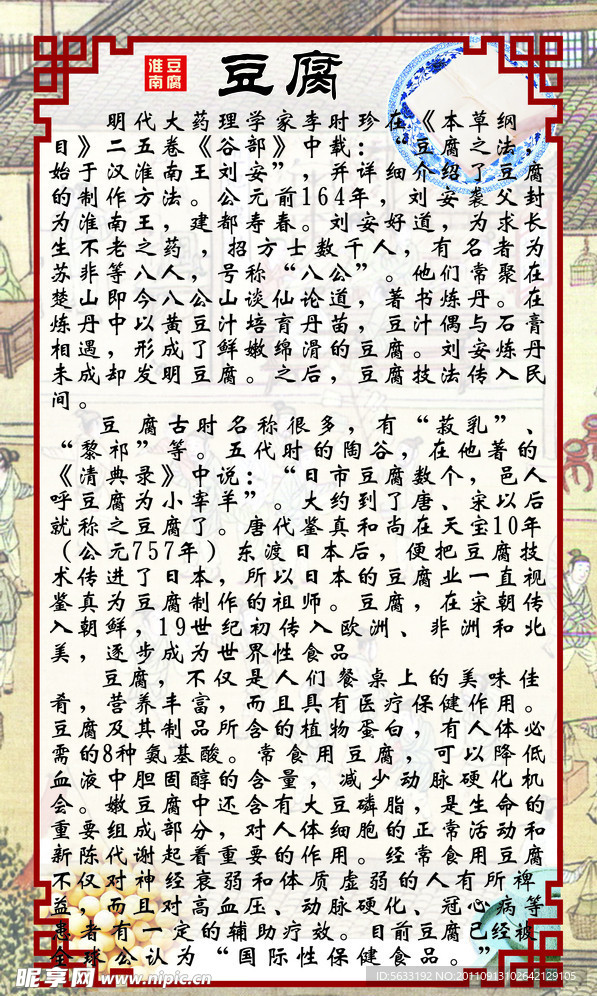 淮南豆腐
豆腐
明代大药理学家李时珍在《本草纲
目》二五卷《谷部》中载：“豆腐之法，
始于汉淮南王刘安”，并详细介绍了豆腐
的制作方法。公元前164年，刘安袭父封
为淮南王，建都寿春。刘安好道，为求长
生不老之药，招方士数千人，有名者为
苏非等八人，号称“八公”。他们常聚在
楚山即今八公山谈仙论道，著书炼丹。在
炼丹中以黄豆汁培育丹苗，豆汁偶与石膏
相遇，形成了鲜嫩绵滑的豆腐。刘安炼丹
未成却发明豆腐。之后，豆腐技法传入民
间。
豆 腐古时名称很多，有“菽乳”、
“黎祁”等。五代时的陶谷，在他著的
《清典录》中说：“日市豆腐数个，邑人
呼豆腐为小宰羊”。大约到了唐、宋以后
就称之豆腐了。唐代鉴真和尚在天宝10年
（公元757年）东渡日本后，便把豆腐技
术传进了日本，所以日本的豆腐业一直视
鉴真为豆腐制作的祖师。豆腐，在宋朝传
入朝鲜，19世纪初传入欧洲、非洲和北
美，逐步成为世界性食品
豆腐，不仅是人们餐桌上的美味佳
肴，营养丰富，而且具有医疗保健作用。
豆腐及其制品所含的植物蛋白，有人体必
需的8种氨基酸。常食用豆腐，可以降低
血液中胆固醇的含量，减少动脉硬化机
会。嫩豆腐中还含有大豆磷脂，是生命的
重要组成部分，对人体细胞的正常活动和
新陈代谢起着重要的作用。经常食用豆腐
不仅对神经衰弱和体质虚弱的人有所裨
益，而且对高血压、动脉硬化、冠心病等
患者有一定的辅助疗效。目前豆腐已经被
全球公认为“国际性保健食品。”
昵享网 www.nipic.cn
ID:5633192 NO:20110913102642129105